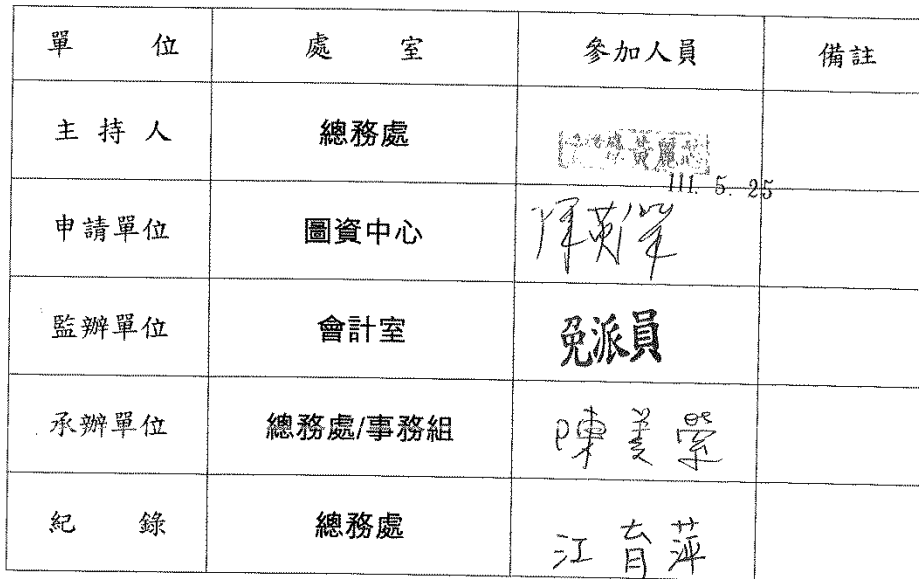 單 位 處 室 參加人員 備註
主 持 人 總務處 黃麗
111. 5. 25
申請單位 圖資中心 陳英
監辦單位 會計室 免派員
承辦單位 總務處/事務組 陳美
紀 錄 總務處 江育萍